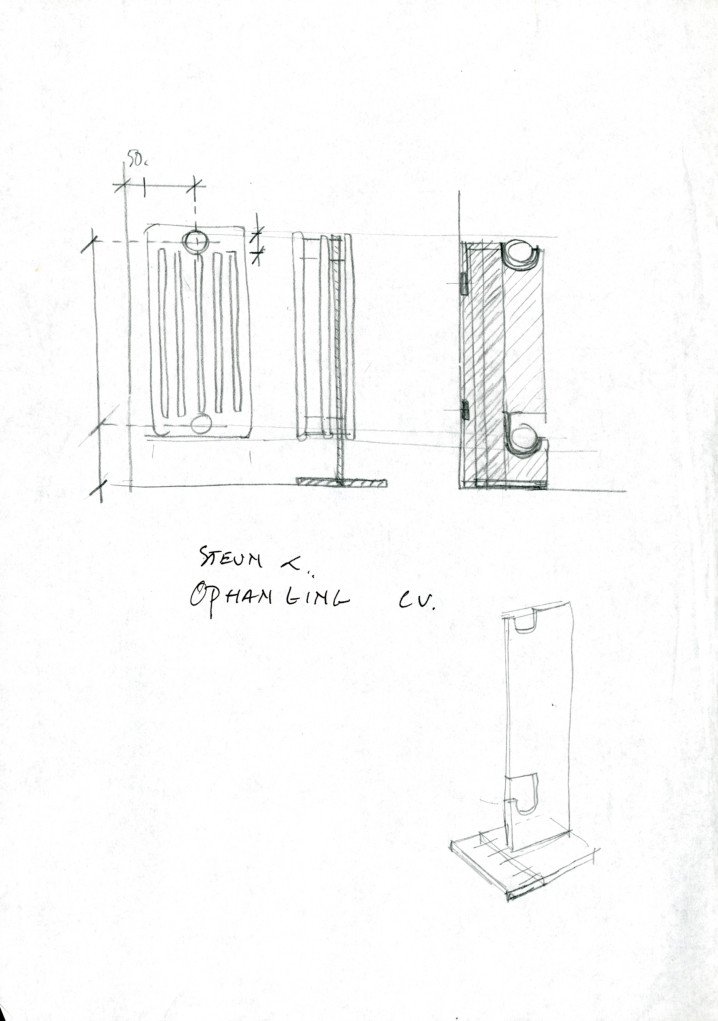 50.
STEUN &.
OPHANGING CV.